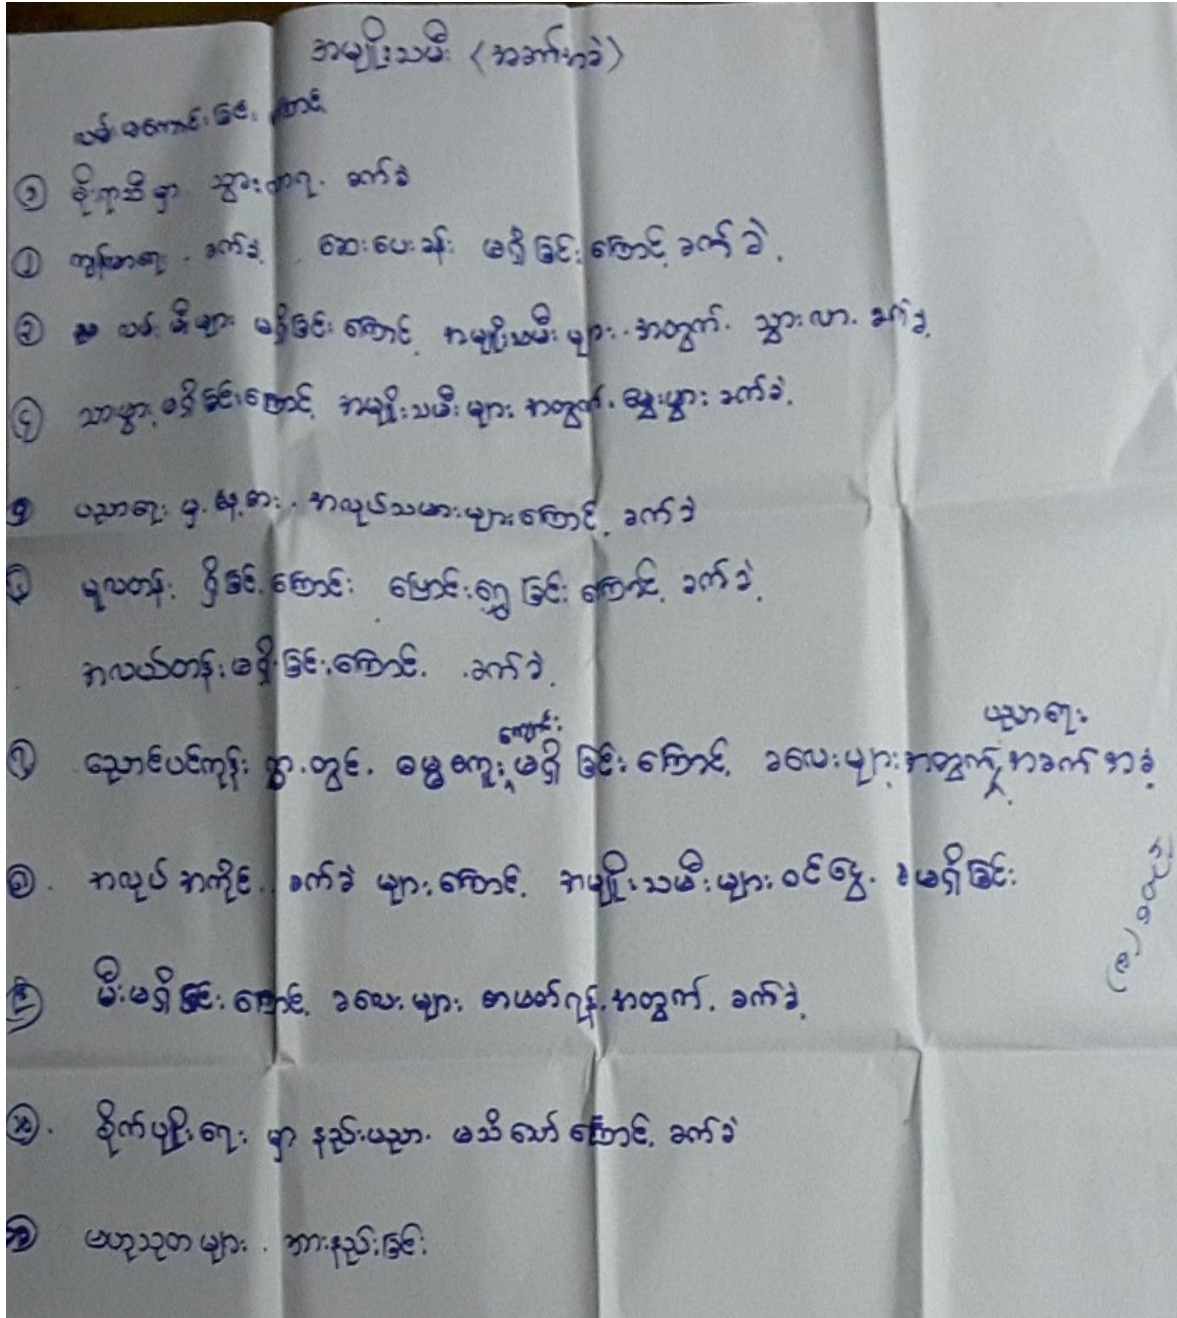 အမျိုးသမီး (အခက်အခဲ)
လမ်းမကောင်းခြင်းကြောင့်
၁ မိုးရာသီမှာ သွားလာရ ခက်ခဲ
၂ ကျန်းမာရေး ခက်ခဲ့ ဆေးပေးခန်း မရှိခြင်းကြောင့် ခက်ခဲ
၃ လမ်းမီးများ မရှိခြင်းကြောင့် အမျိုးသမီးများ အတွက် သွားလာ ခက်ခဲ့
၄ သားဖွား မရှိခြင်းကြောင့် အမျိုးသမီးများ အတွက် မွေးဖွား ခက်ခဲ့
၅ ပညာရေး အလုပ်သမားများကြောင့် ခက်ခဲ
၆ မူလတန်း ရှိခြင်းကြောင်း ပြောင်းရွှေ့ခြင်းကြောင့် ခက်ခဲ့
အလယ်တန်းမရှိခြင်းကြောင့် ခက်ခဲ့
ကျောင်း ပညာရေး
၇ ညောင်ပင်ကုန်း ရွာတွင် ဓမ္မစကူး မရှိခြင်းကြောင့် ခလေးများအတွက် အခက်အခဲ့
၈ အလုပ်အကိုင် ခက်ခဲများကြောင့် အမျိုးသမီးများ ဝင်ငွေ မရှိခြင်း
၉ မီးမရှိခြင်းကြောင့် ခလေးများ စာဖတ်ရန် အတွက် ခက်ခဲ့
၁၀ စိုက်ပျိုးရေးမှာ နည်းပညာ မသိသော်ကြောင့် ခက်ခဲ
၁၁ ဗဟုသုတများ အားနည်းခြင်း